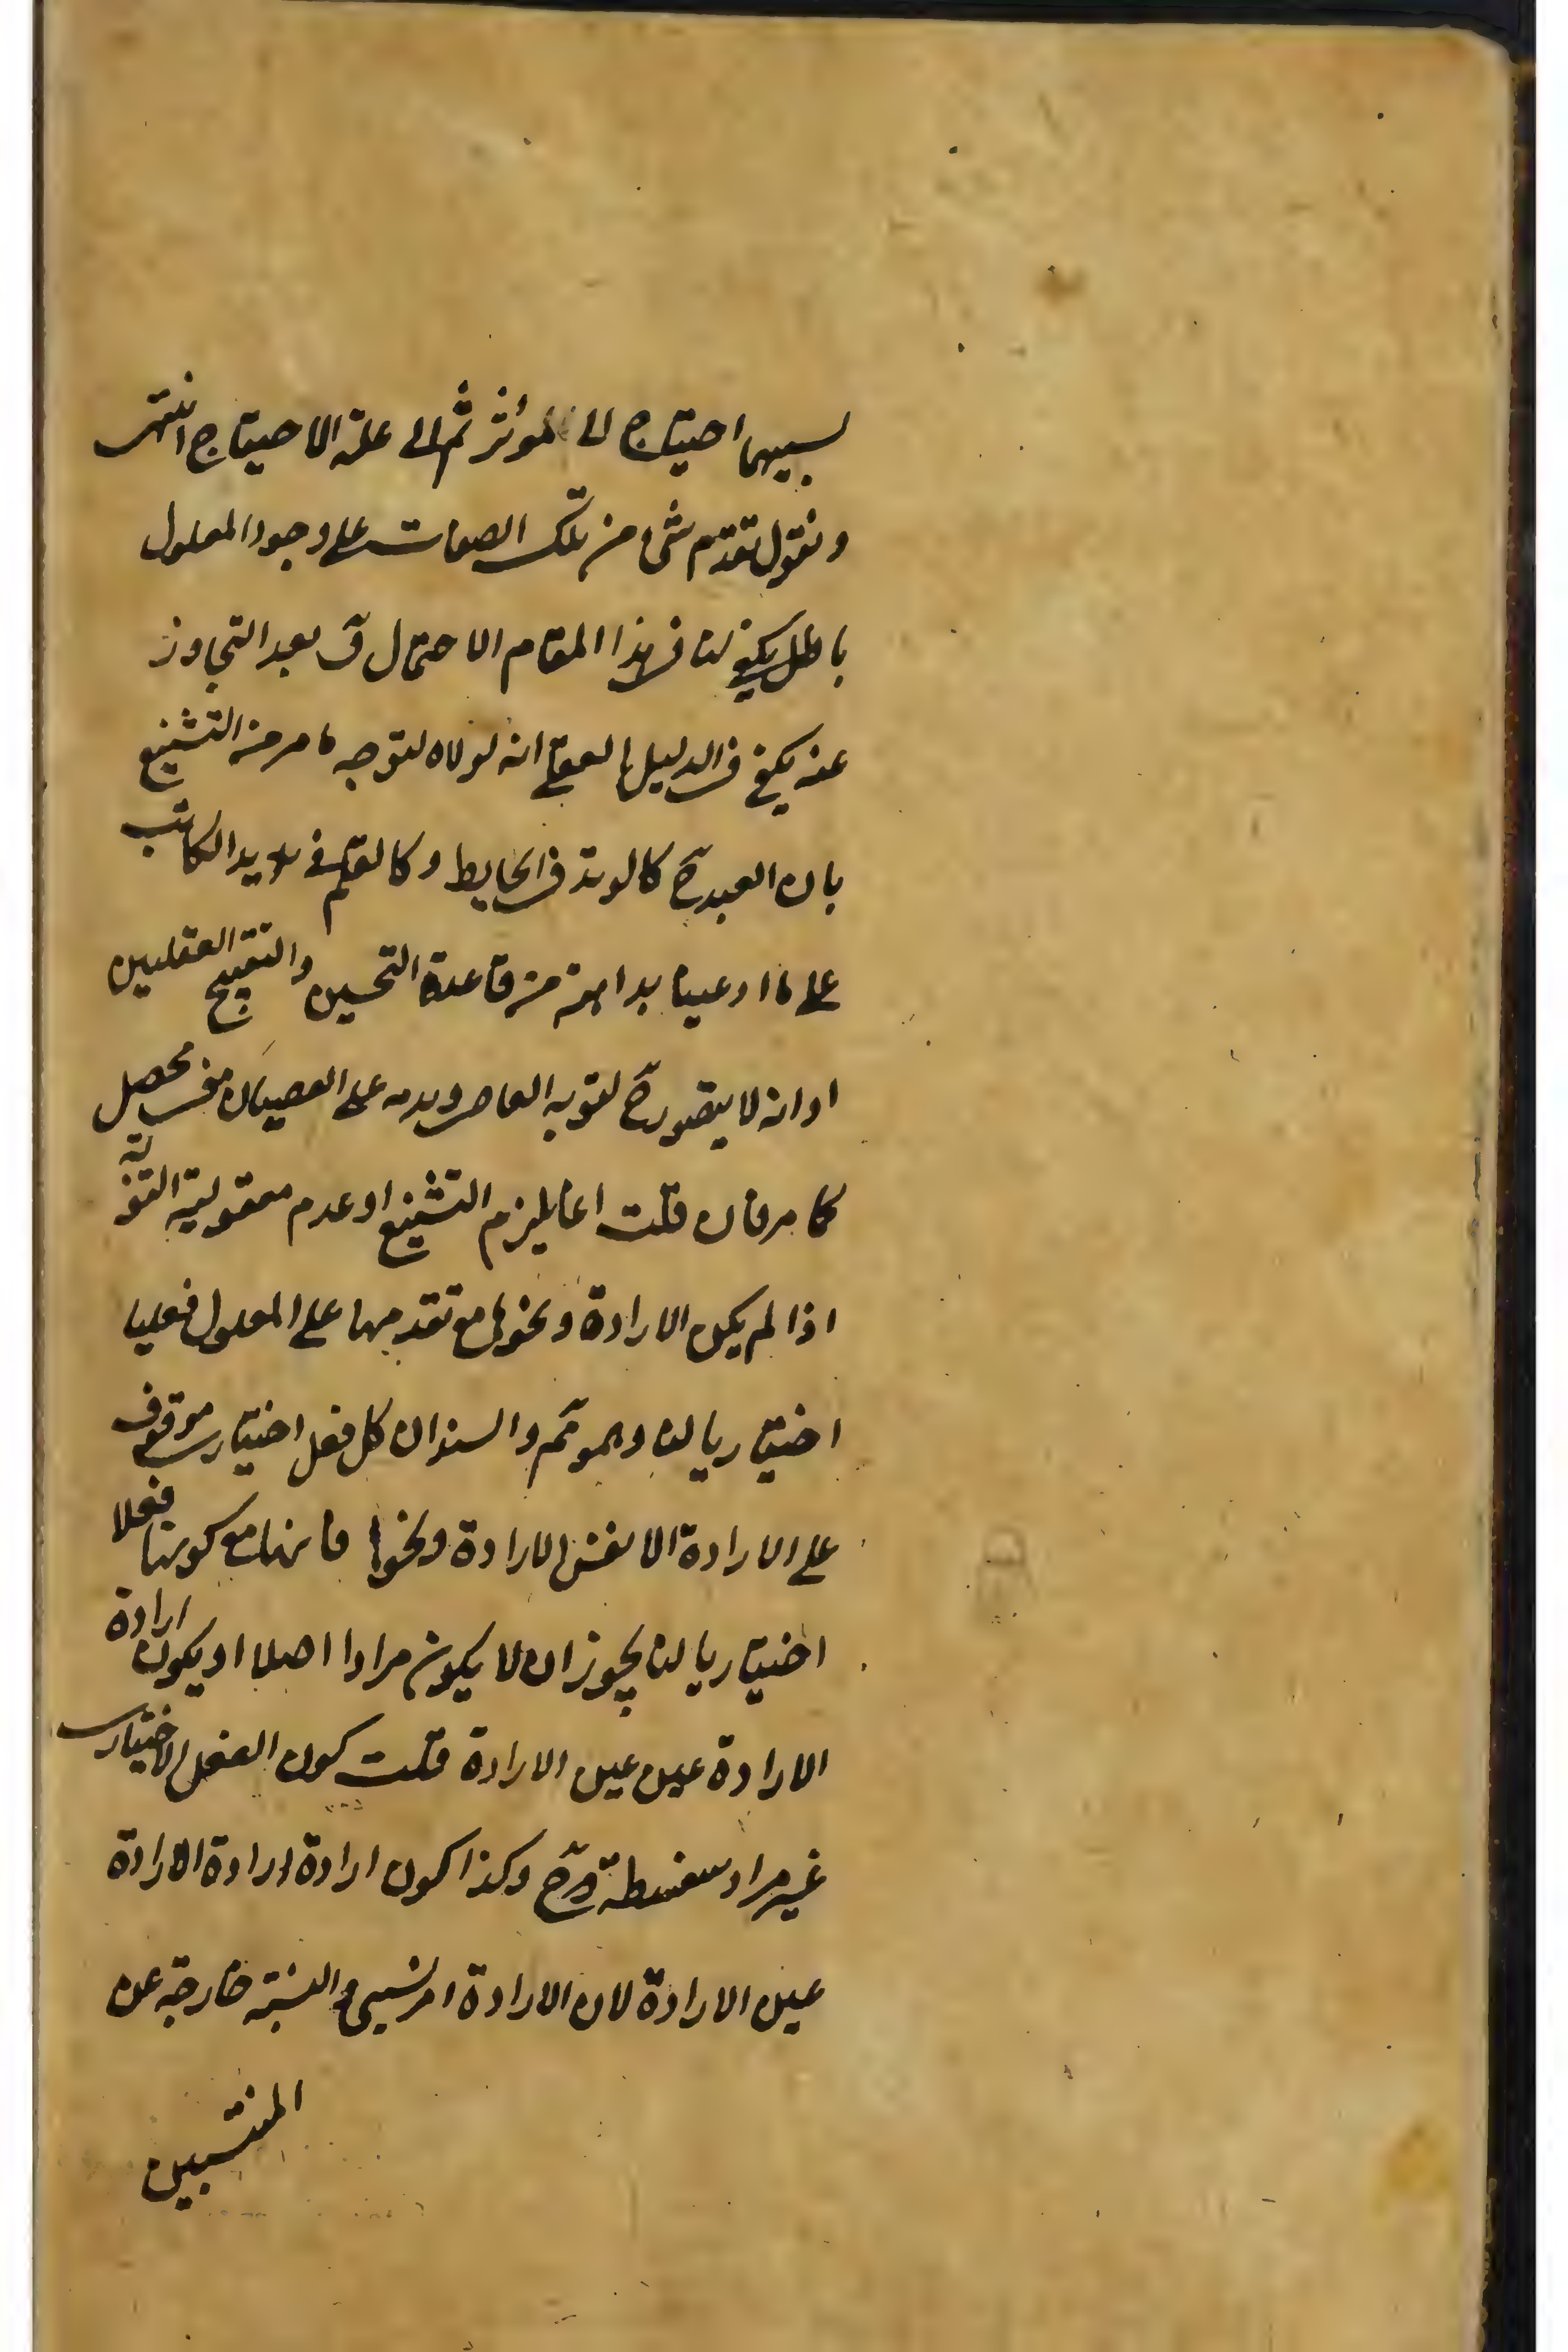 لسبيهما احتياج الى المؤثر ثم الى علة الاحتياج انتهى
ونقول تقدم شئ من تلك الصفات على وجود المعلول
باطل يكفي لنا في هذا المقام الاحتمال ق بعد التجاوز
عنه يكفي في الدليل العقلي انه لولاه لتوجه ما مر من التشنيع
بان العبد ح كالوتد في الحايط وكالقلم في يد الكاتب
على ما ادعينا بداهته من قاعدة التحسين والتقبيح العقليين
او انه لا يتصور ح لتوبة العاصي وندمه على العصيان معنى محصل
كما مر فان قلت انما يلزم التشنيع او عدم معقولية التوبة
اذا لم يكن الارادة ونحوها مع تقدمها على المعلول فعليا
اختياريا لنا وهو ثم والسند ان كل فعل اختياري موقوف
على الارادة الا نفس الارادة ونحوها فانها مع كونها فعلا
اختياريا لنا يجوز ان لا يكون مرادا اصلا او يكون ارادة
الارادة عين عين الارادة قلت كون الفعل الاختياري
غير مراد سفسطة ح وكذا كون ارادة ارادة الارادة
عين الارادة لان الارادة امر نسبي والنسبة خارجة عن
المنتسبين